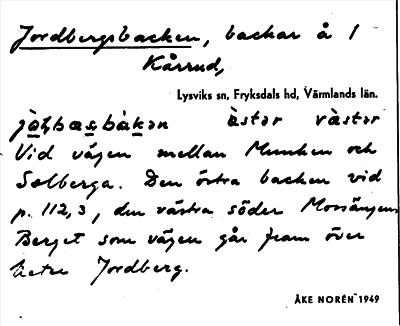 Jordbergsbacken, backar å 1
Kårrud,
Lysviks sn, Fryksdals hd, Värmlands län.
àstər vàstər
Vid vägen mellan Munken och
Solberga. Den östra backen vid
p. 112,3, den västra söder Mossängen
Berget som vägen går fram över
heter Jordberg.
ÅKE NORÉN 1949